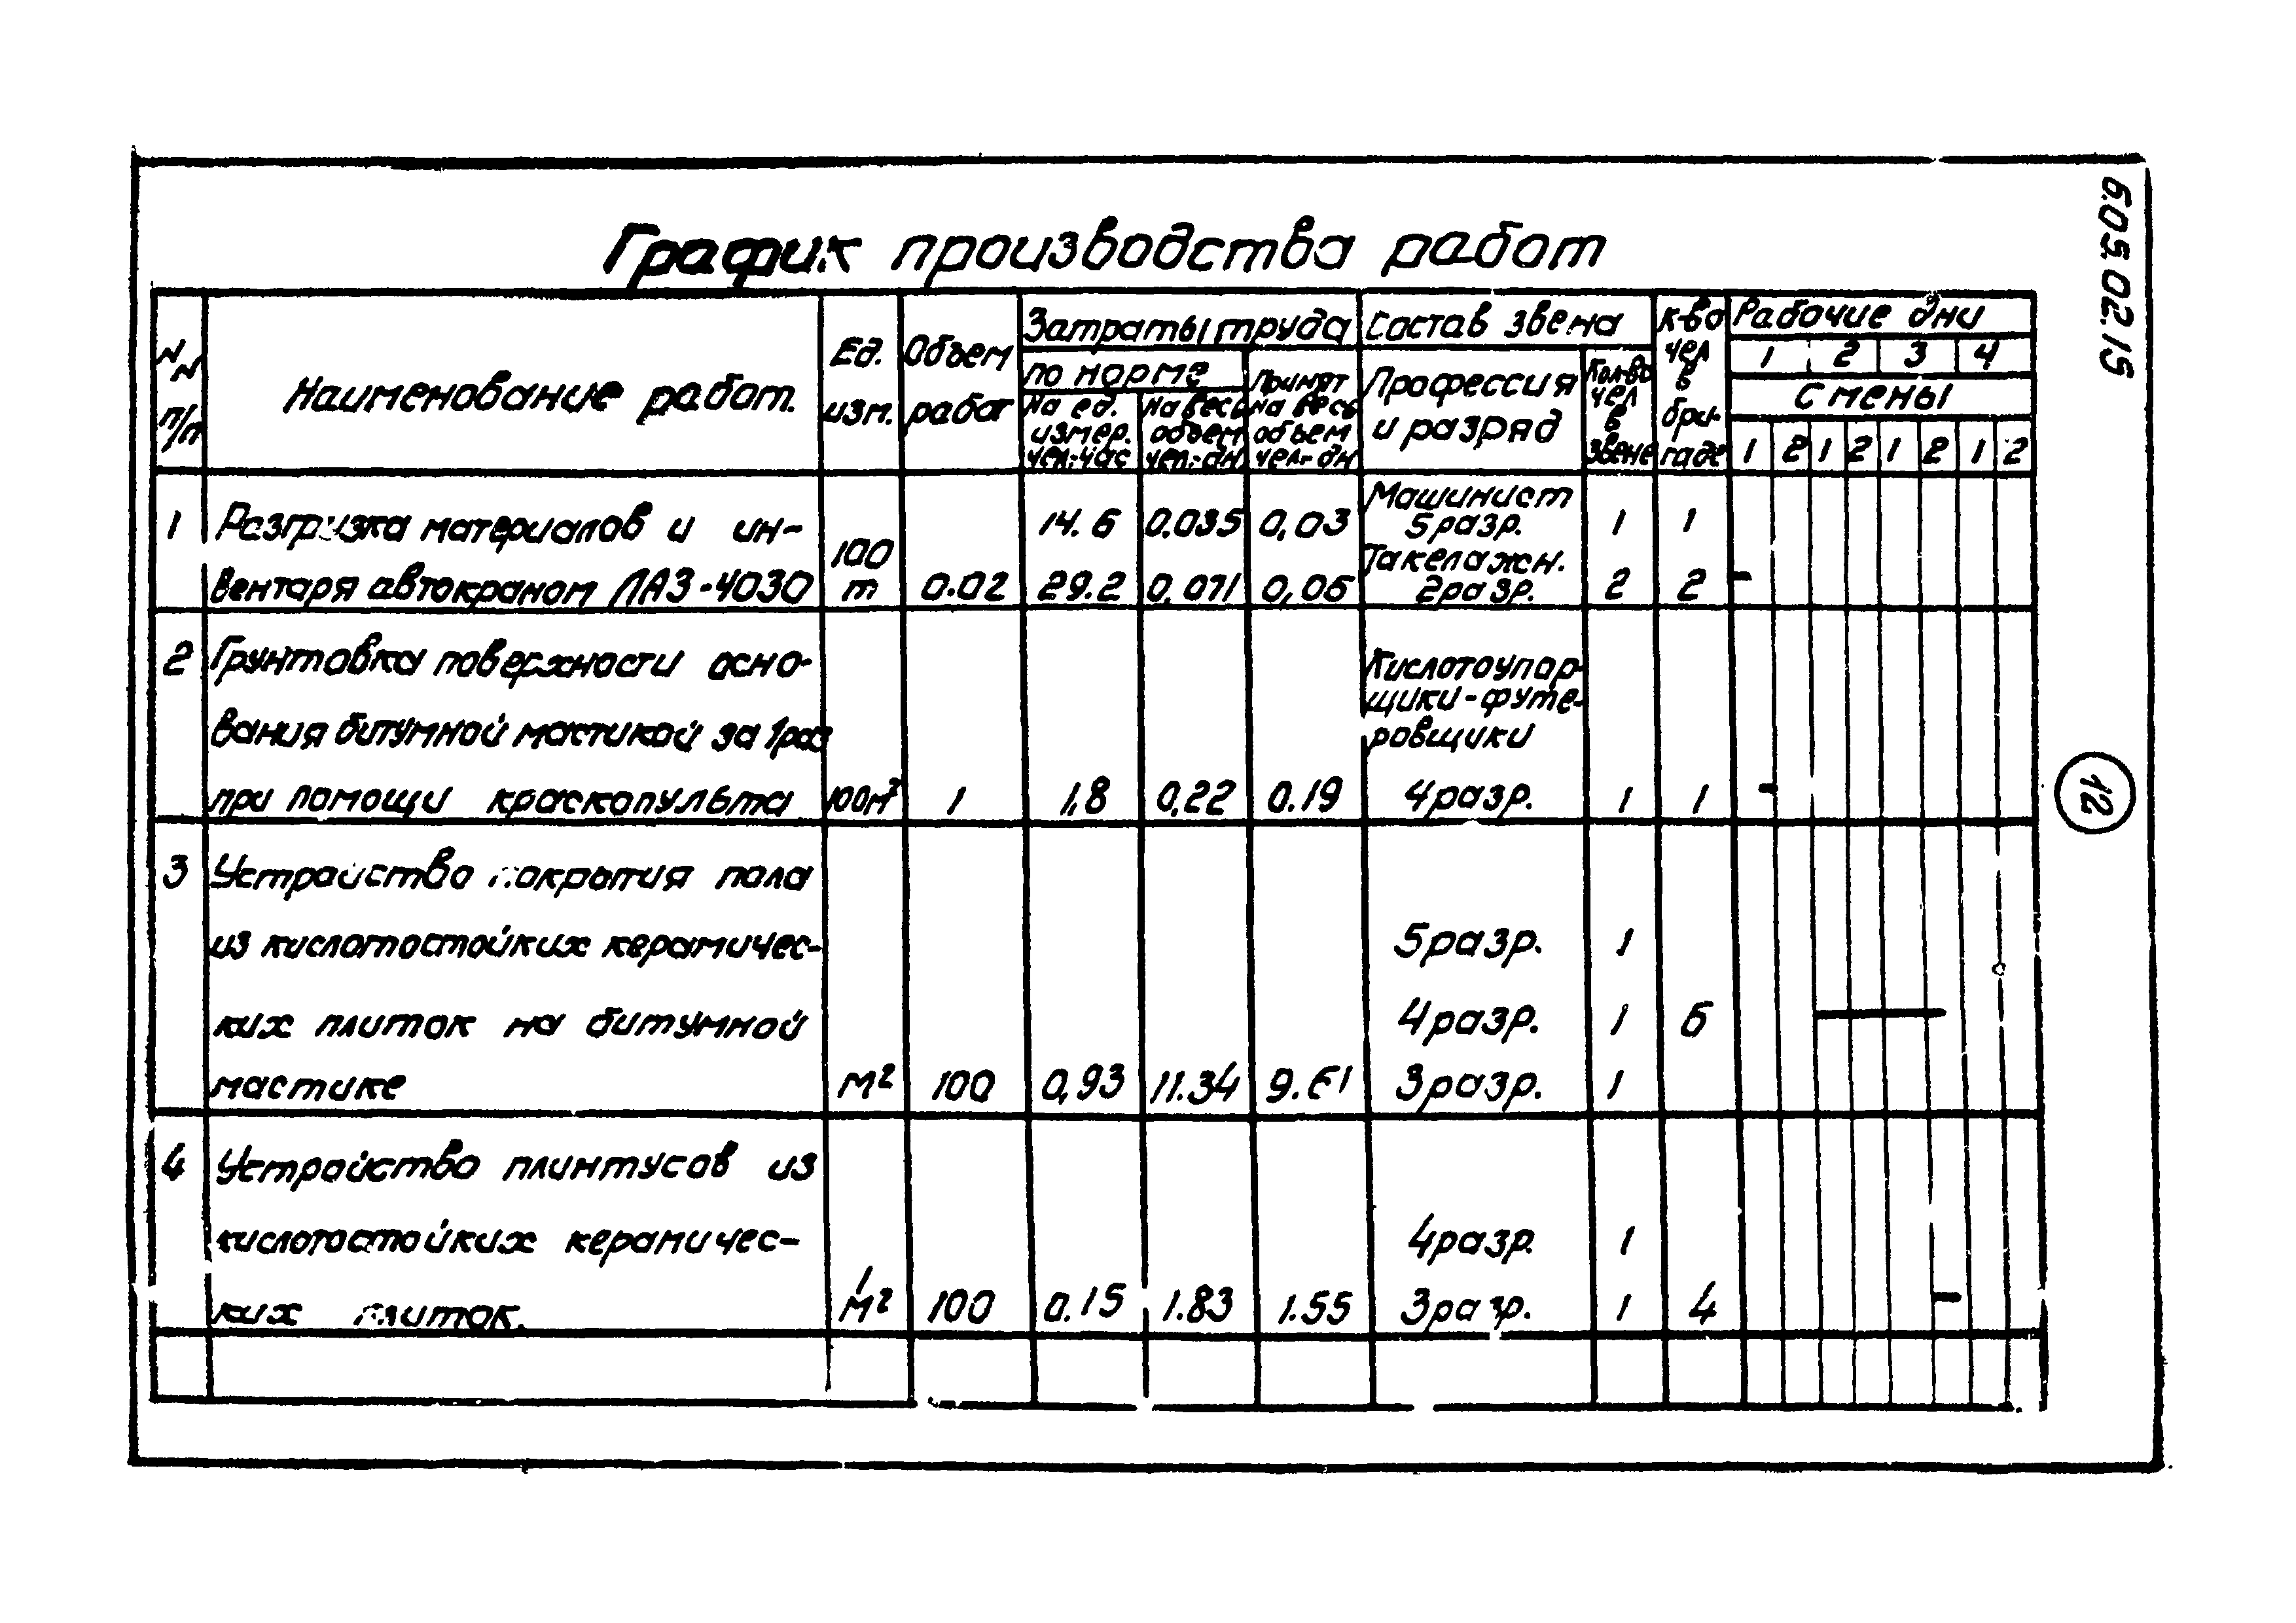 6.05.02.15
График производства работ
NN п/п
Наименование работ.
Ед. изм.
Объем работ
Затраты труда
по норме
На ед. измер. чел.-час
На весь объем чел.-дн
Принят на весь объем чел.-дн
Состав звена
Профессия и разряд
Кол-во чел в звене
К-во чел в бригаде
Рабочие дни
1 2 3 4
Смены
1 2 1 2 1 2 1 2
1 Разгрузка материалов и ин- 14.6 0.035 0,03 Машинист 5разр. 1 1
вентаря автокраном ЛАЗ-4030 100 т 0.02 29.2 0,071 0,06 Такелажн. 2разр. 2 2
2 Грунтовка поверхности осно- Кислотоупор-
щики-футе-
вания битумной мастикой за 1раз ровщики
при помощи краскопульта 100м² 1 1,8 0,22 0.19 4разр. 1 1
3 Устройство покрытия пола
из кислотостойких керамичес- 5разр. 1
ких плиток на битумной 4разр. 1 6
мастике м² 100 0,93 11.34 9.61 3разр. 1
4 Устройство плинтусов из
кислотостойких керамичес- 4разр. 1
ких плиток. м² 100 0.15 1.83 1.55 3разр. 1 4
12